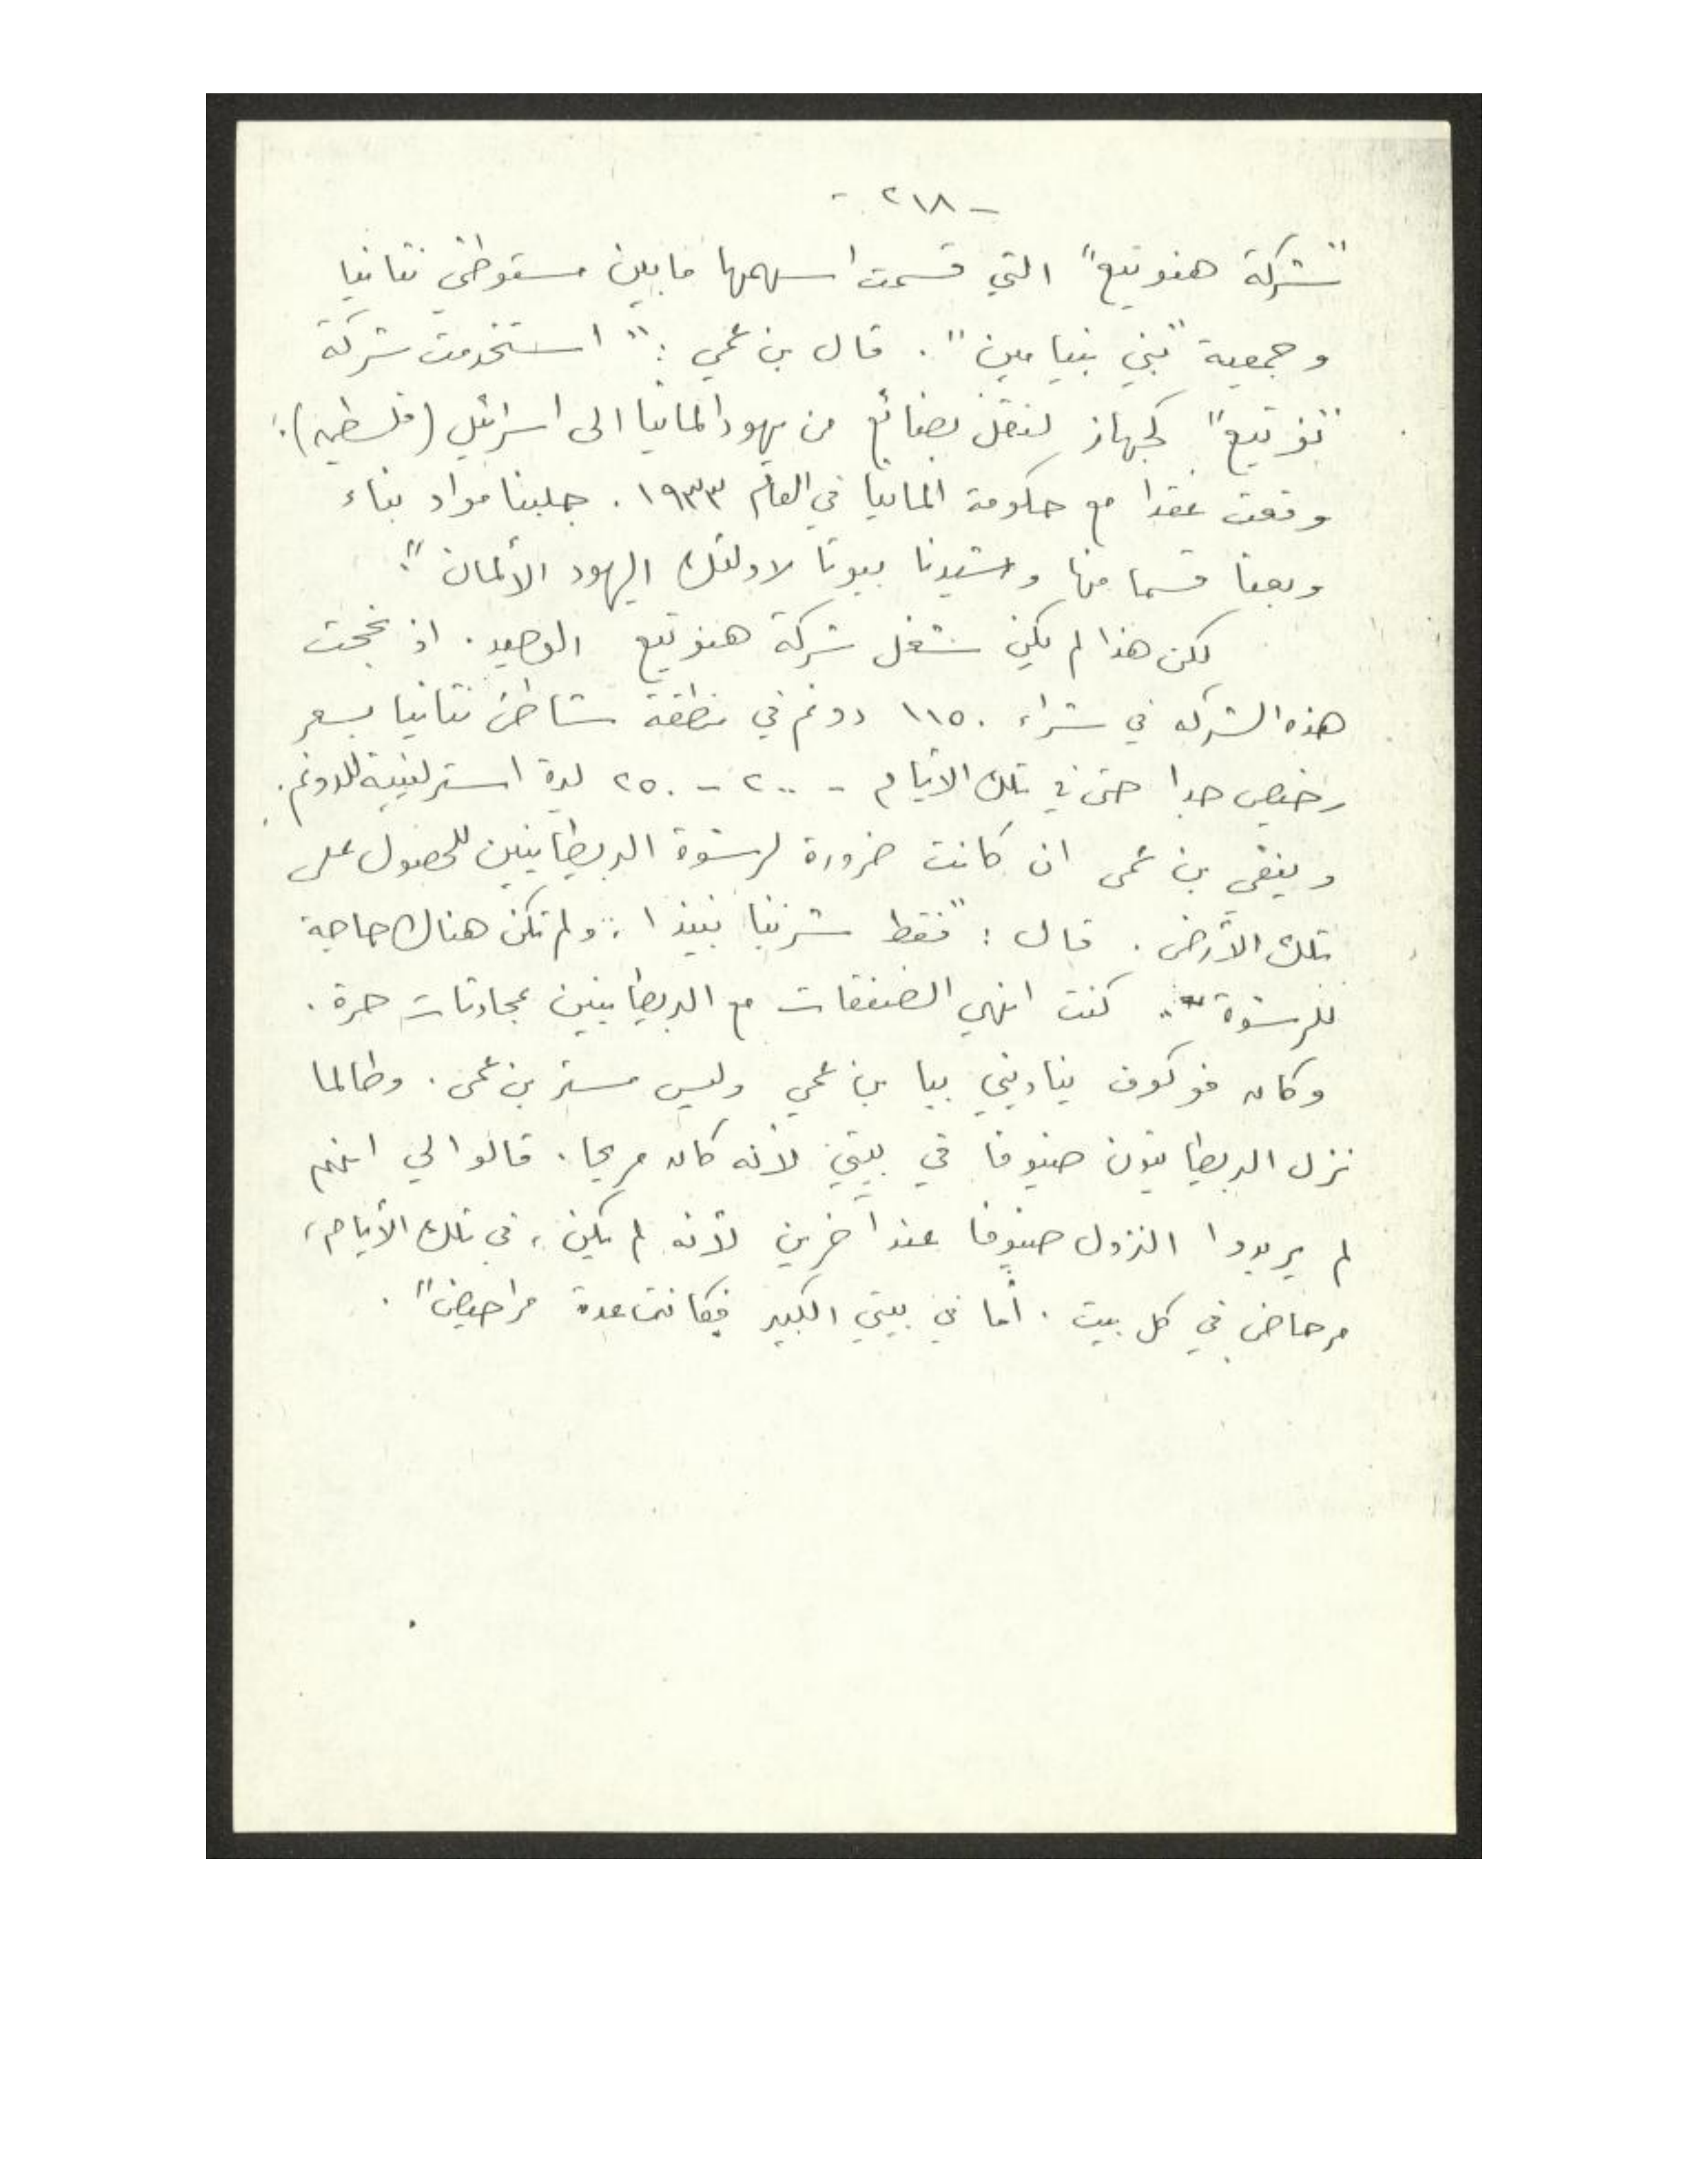 - ٢١٨ -
"شركة هنوتيع" التي قسمت اسهمها مابين مستوطني نتانيا
وجمعية "بني بنيامين". قال بن عمي: "استخدمت شركة
"نوتيع" كجهاز لنقل بضائع من يهود المانيا الى اسرائيل (فلسطين):
وقعت عقدا مع حكومة المانيا في العام ١٩٣٣. جلبنا مواد بناء
وبعنا قسما منها وشيدنا بيوتا لاولئك اليهود الألمان".
لكن هذا لم يكن شغل شركة هنوتيع الوحيد. اذ نجحت
هذه الشركه في شراء ١١٥٠ دونم في منطقة شاطئ نتانيا بسعر
رخيص جدا حتى في تلك الأيام - ٢٠٠ - ٢٥٠ ليرة استرلينية للدونم.
وينفي بن عمي ان كانت ضرورة لرشوة البريطانيين للحصول على
تلك الأرض. قال: "فقط شربنا نبيذا، ولم تكن هناك حاجة
للرشوة". كنت انهي الصفقات مع البريطانيين بمحادثات حرة.
وكان فوكوف يناديني بيا بن عمي وليس مستر بن عمي. وطالما
نزل البريطانيون ضيوفا في بيتي لأنه كان مريحا. قالوا لي انهم
لم يريدوا النزول ضيوفا عند آخرين لأنه لم يكن، في تلك الأيام،
مرحاض في كل بيت. أما في بيتي الكبير فكانت عدة مراحيض".